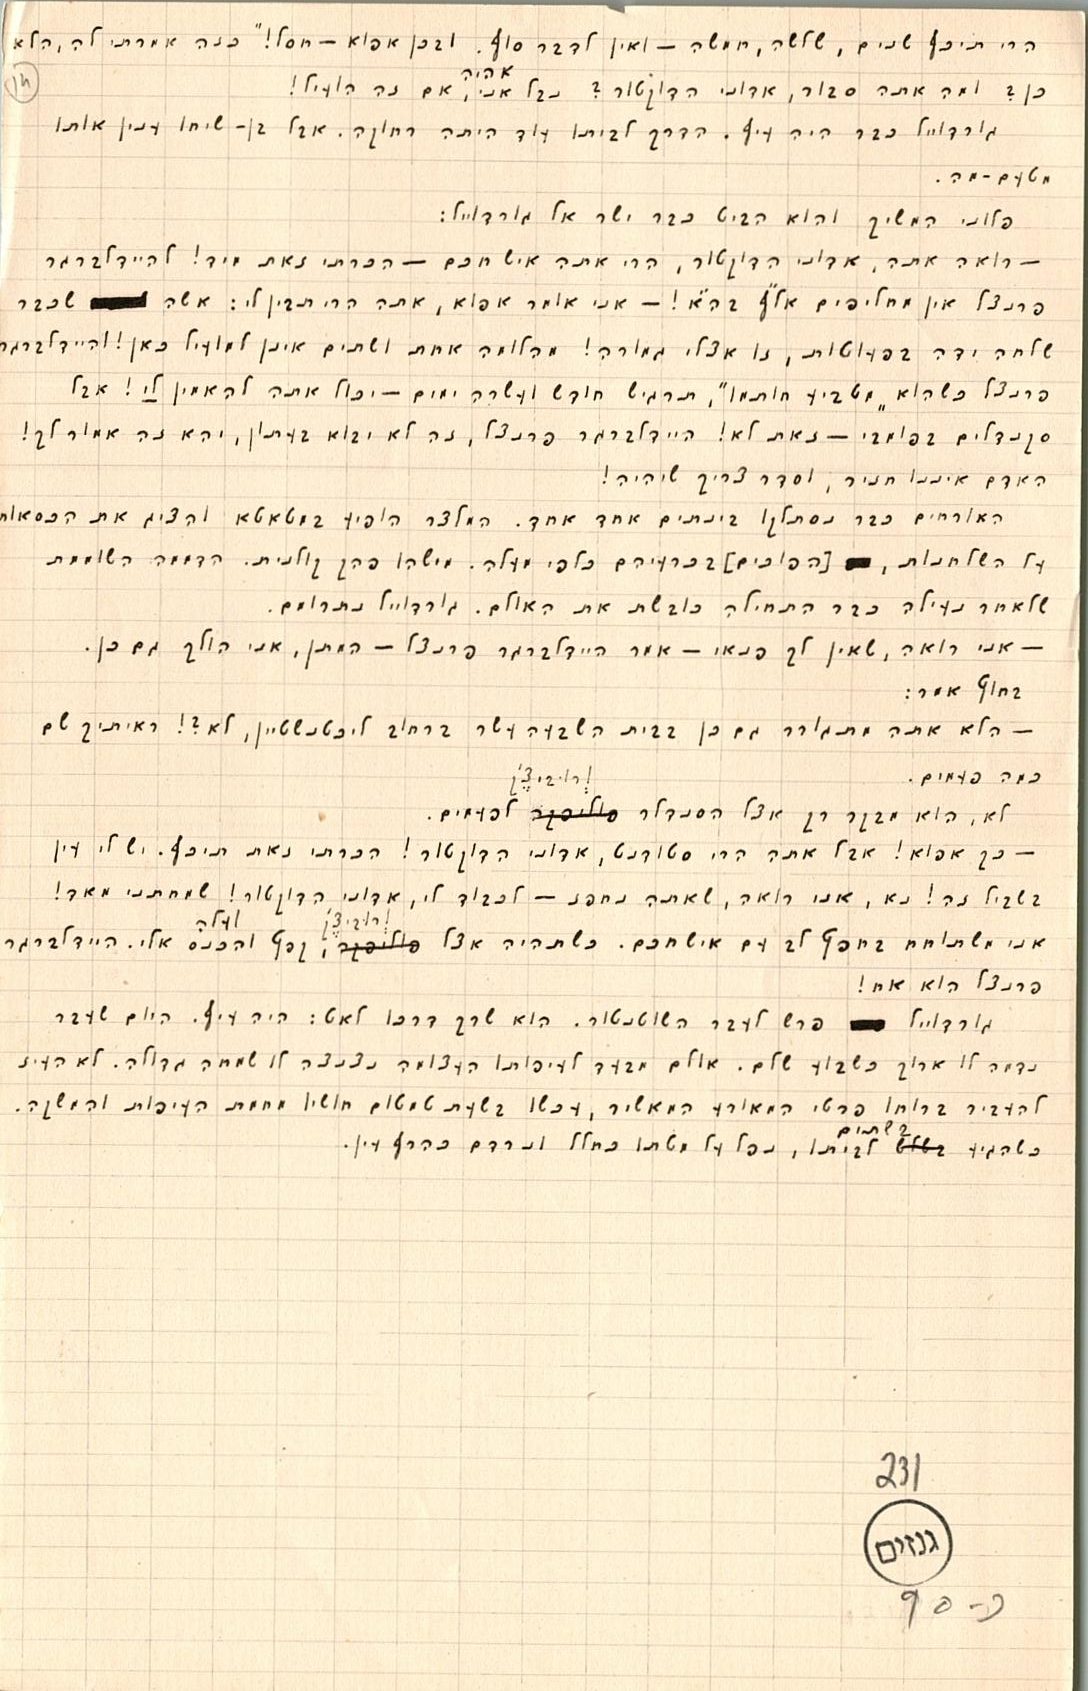 הרי תיכף שנים, שלשה, חמשה – ואין לדבר סוף. ובכן אפוא – חסל!" ככה אמרתי לה, הלא
כן? ומה אתה סבור, אדוני הדוקטור? נבל אני, אם זה הועיל!
אהיה
גורדוייל כבר היה עיף. הדרך לביתו עוד היתה רחוקה. אבל בן-שיחו ענין אותו
מטעם-מה.
פלוני המשיך והוא הביט כבר ישר אל גורדוייל:
– רואה אתה, אדוני הדוקטור, הרי אתה איש חכם – הכרתי זאת מיד! להיידלברגר
פרנצל אין מחליפים אל"ף בה"א! – אני אומר אפוא, אתה הרי תבין לי: אשה שכבר
שלחה ידה בפעוטות, זו אצלי גמורה! מהלומה אחת ושתים אינן למועיל כאן! והיידלברגר
פרנצל כשהוא "מטביע חותמו", תרגיש חודש ועשרה ימים – יכול אתה להאמין לי! אבל
סקנדלים בפומבי – זאת לא! היידלברגר פרנצל, זה לא יבוא בעתון, יהא זה אמור לך!
האדם איננו חזיר, וסדר צריך שיהיה!
האורחים כבר נסתלקו בינתים אחד אחד. המלצר הופיע במטאטא והציג את הכסאות
על השלחנות, [הפוכים] בכרעיהם כלפי מעלה. מישהו פהק קולנית. הדממה השוממת
שלאחר נעילה כבר התחילה כובשת את האולם. גורדוייל נתרומם.
– אני רואה, שאין לך פנאי – אמר היידלברגר פרנצל – המתן, אני הולך גם כן.
בחוץ אמר:
– הלא אתה מתגורר גם כן בבית השבעה עשר ברחוב ליכטנשטיין, לא?! ראיתיך שם
כמה פעמים.
לא, הוא מבקר רק אצל הסנדלר לפעמים.
– כך אפוא! אבל אתה הרי סטודנט, אדוני הדוקטור! הכרתי זאת תיכף. יש לי עין
בשביל זה! נא, אני רואה, שאתה נחפז – לכבוד לי, אדוני הדוקטור! שמחתני מאד!
ועלה
אני משתוחח בחפץ לב עם איש חכם. כשתהיה אצל , קפץ והכנס אלי. היידלברגר
פרנצל הוא אח!
גורדוייל פרש לעבר השוטנטור. הוא שרך דרכו לאט: היה עיף. היום שעבר
נדמה לו ארוך כשבוע שלם. אולם מבעד לעיפותו העצומה נצנצה לו שמחה גדולה. לא העיז
להעביר ברוחו פרטי המאורע המאשיר, עכשו בשעת טמטום חושיו מחמת העיפות והמשקה.
בשתים
כשהגיע בשלש לביתו, נפל על מטתו כחלל ונרדם כהרף עין.
231
גנזים